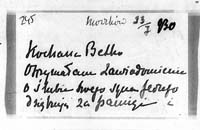 245 Smorków 23/I 930
Kochana Belko
Otrzymałam zawiadomienie
o ślubie Twego syna
dziękuję za pamięć i